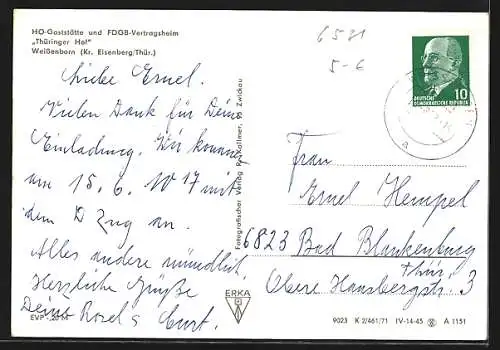 HO-Gaststätte und FDGB-Vertragsheim
„Thüringer Hof"
Weißenborn (Kr. Eisenberg/Thür.)
Liebe Ernel.
Vielen Dank für Deine
Einladung. Wir kommen
am 15.6. 10 17 mit
dem D Zug an.
Alles andere mündlich.
Herzliche Grüße
Deine Rosel u Curt.
EVP -,20 M
Fotografischer Verlag R. Kallmer, 95 Zwickau
ERKA
6531
5-6
10
DEUTSCHE
DEMOKRATISCHE REPUBLIK
a
Frau
Ernel Hempel
6823 Bad Blankenburg
Thür.
Obere Hainsbergstr. 3
9023 K 2/461/71 IV-14-45 A 1151